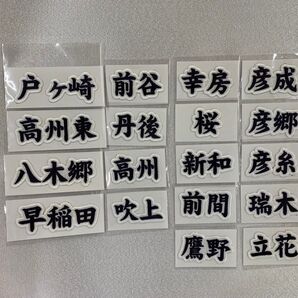 戸ヶ崎 前谷 幸房 彦成
高州東 丹後 桜 彦郷
八木郷 高州 新和 彦糸
早稲田 吹上 前間 瑞木
鷹野 立花